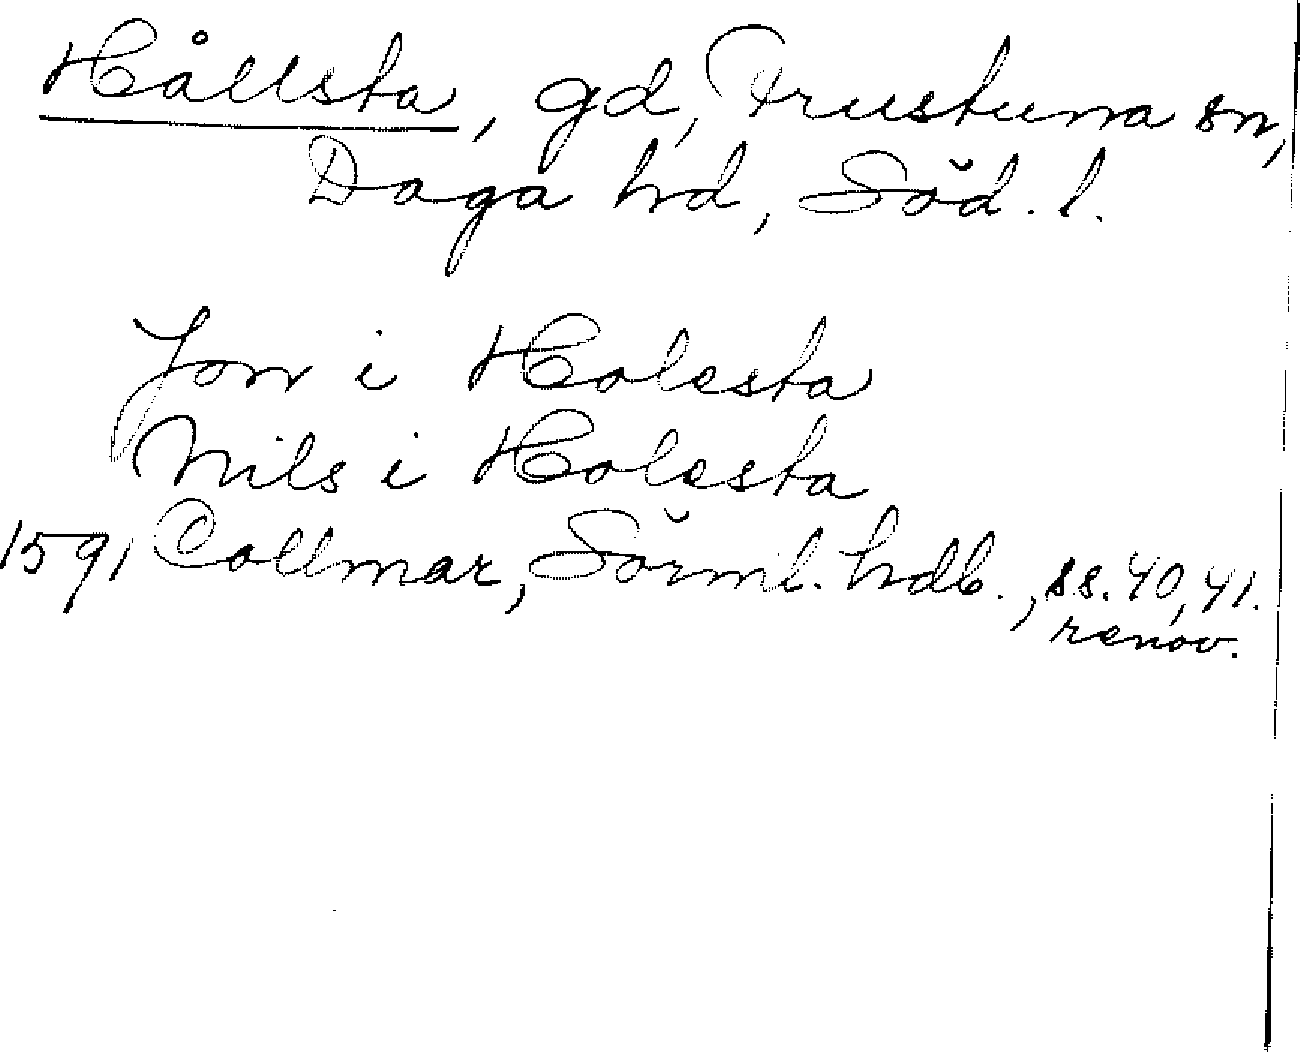 Hållsta, gd, Frustuna sn,
Daga hd, Söd. l.
Jon i Holesta
Nils i Holesta
1591 Collmar, Sörml. hdb., ss. 40, 41.
renov.